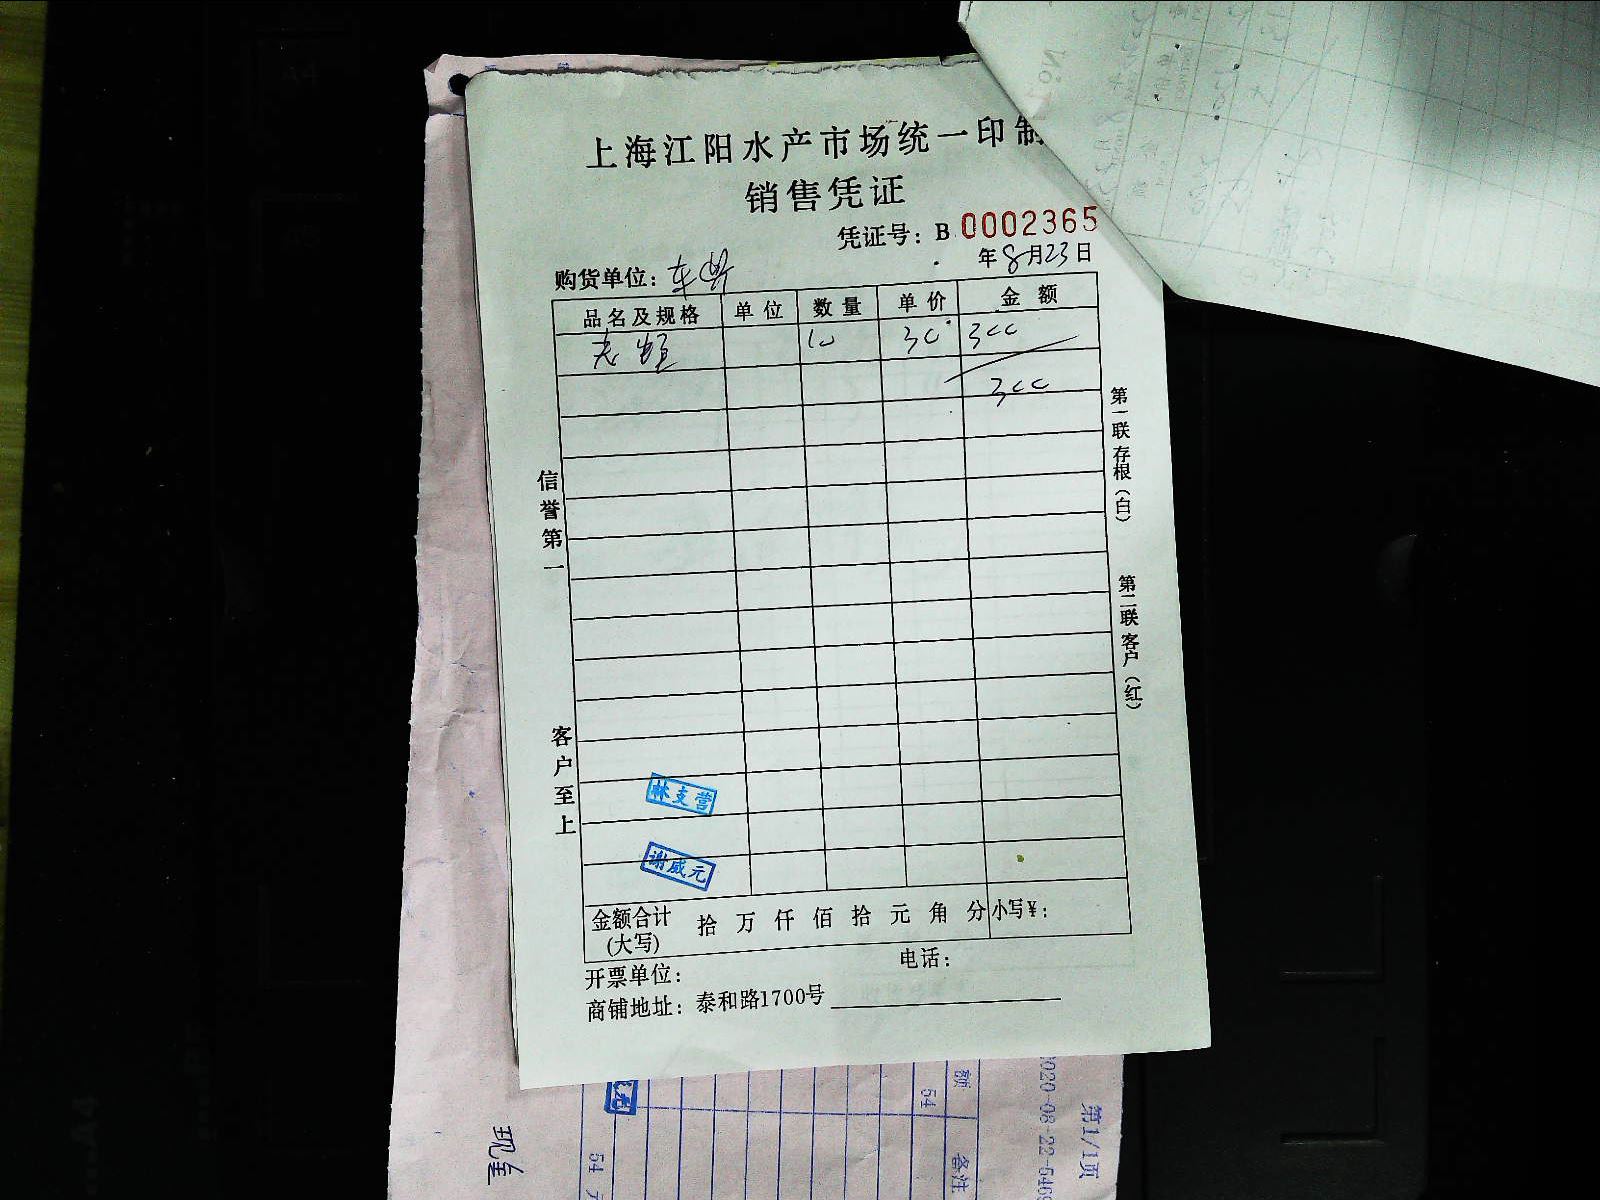 上海江阳水产市场统一印制
销售凭证
凭证号：B 0002365
年8月23日
购货单位：
品名及规格 单位 数量 单价 金额
10 30 300
300
信誉第一
客户至上
第一联存根（白）
第二联客户（红）
林支营
谢威元
金额合计(大写) 拾 万 仟 佰 拾 元 角 分 小写¥：
开票单位： 电话：
商铺地址：泰和路1700号
额
54
备注
54
第1/1页